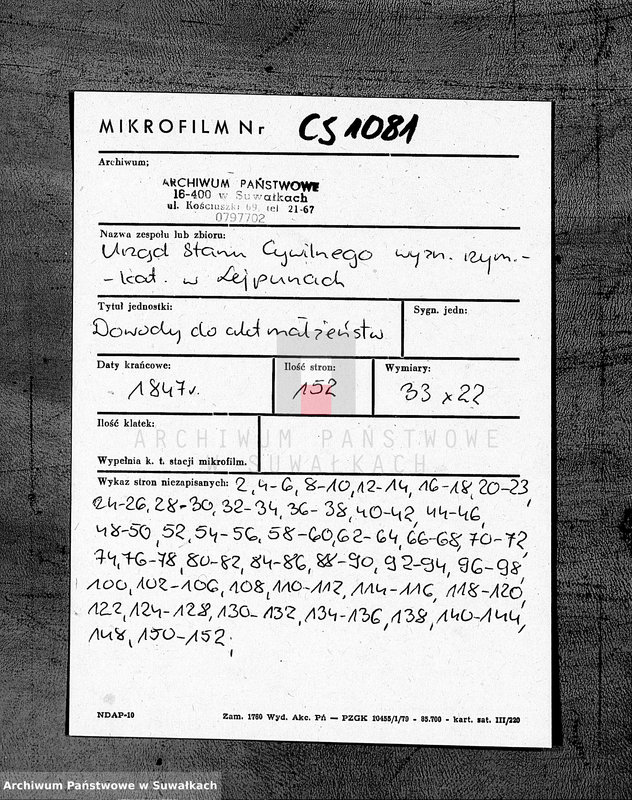 MIKROFILM Nr CS 1081
Archiwum;
ARCHIWUM PAŃSTWOWE
16-400 w Suwałkach
ul. Kościuszki 69, tel 21-67
0797702
Nazwa zespołu lub zbioru:
Urząd Stanu Cywilnego wyzn. rzym.-
-kat. w Lejpunach
Tytuł jednostki:
Sygn. jedn:
Dowody do akt małżeństw
Daty krańcowe:
Ilość stron:
Wymiary:
1847r.
152
33 x 22
Ilość klatek:
ARCHIWUM PAŃSTWOWE
W SUWAŁKACH
Wypełnia k. t. stacji mikrofilm.
Wykaz stron niezapisanych: 2, 4-6, 8-10, 12-14, 16-18, 20-23,
24-26, 28-30, 32-34, 36-38, 40-42, 44-46,
48-50, 52, 54-56, 58-60, 62-64, 66-68, 70-72,
74, 76-78, 80-82, 84-86, 88-90, 92-94, 96-98,
100, 102-106, 108, 110-112, 114-116, 118-120,
122, 124-128, 130-132, 134-136, 138, 140-144,
148, 150-152,
NDAP-10
Zam. 1760 Wyd. Akc. Pń — PZGK 10455/1/79 - 85.700 - kart. sat. III/220
Archiwum Państwowe w Suwałkach